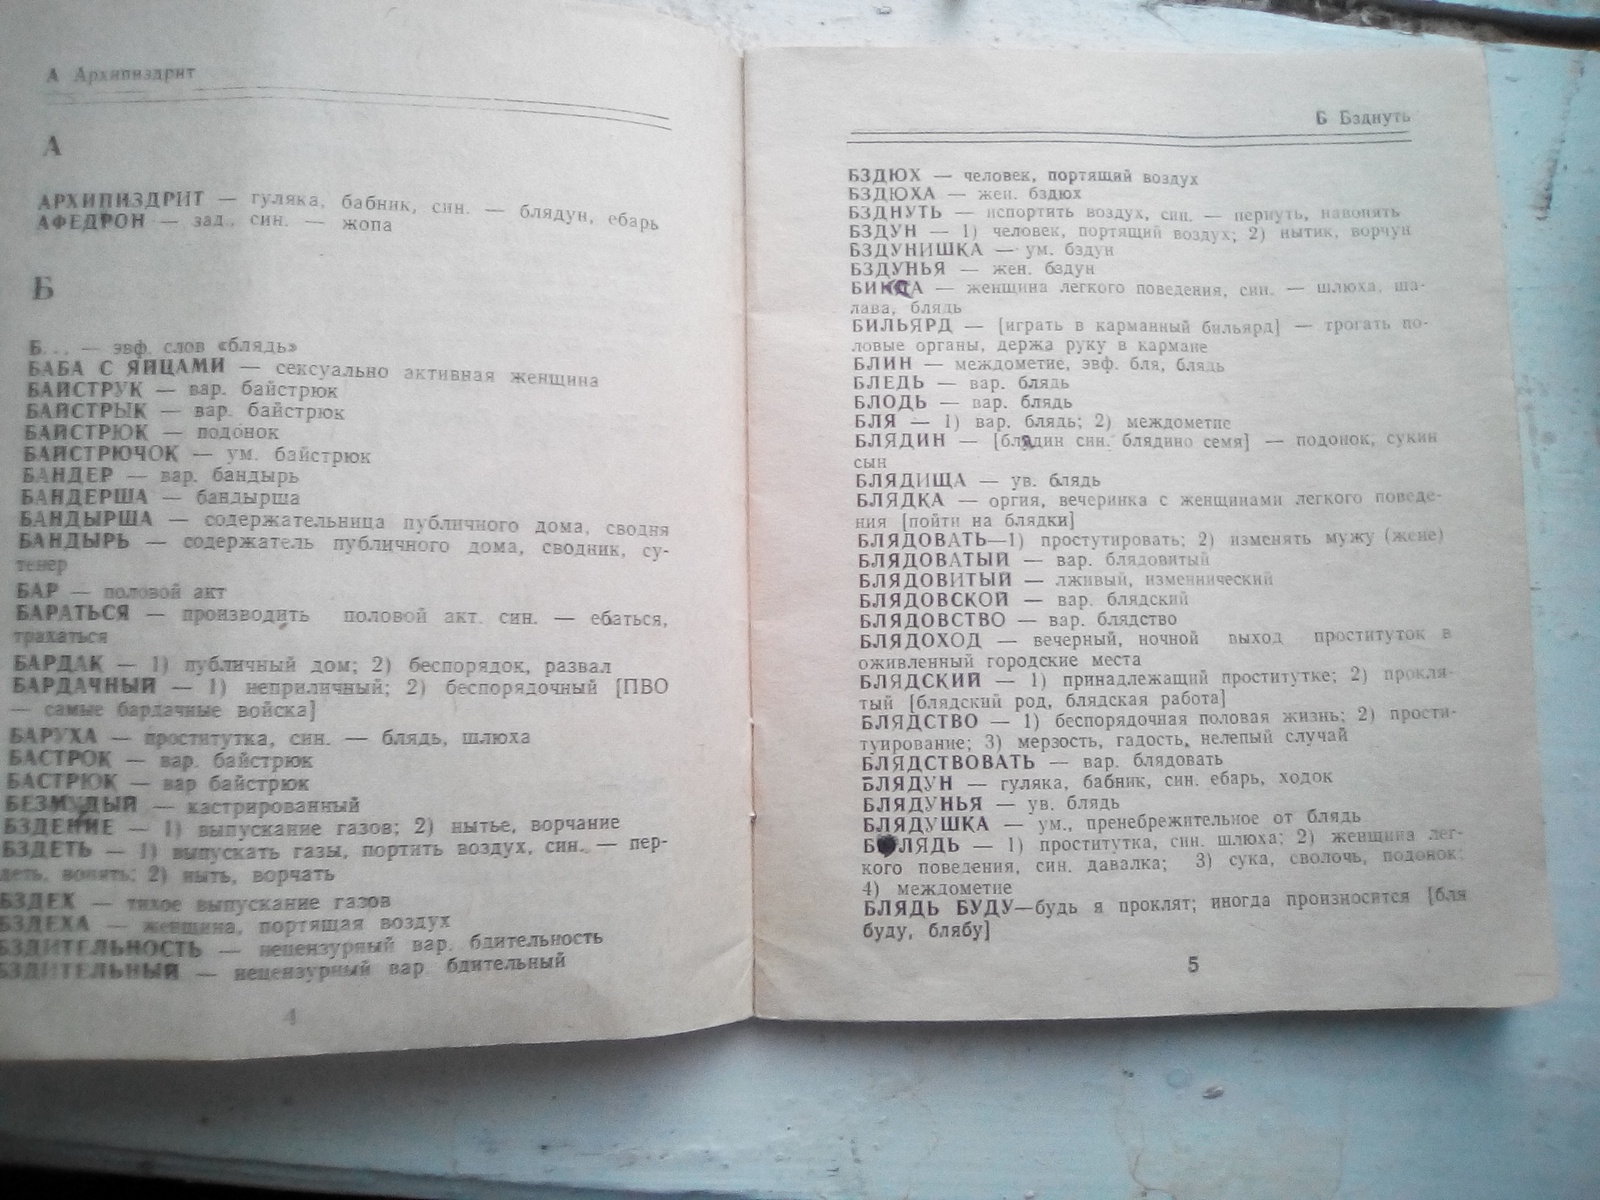 А Архипиздрит
А
АРХИПИЗДРИТ — гуляка, бабник, син. — блядун, ебарь
АФЕДРОН — зад., син. — жопа
Б
Б... — эвф. слов «блядь»
БАБА С ЯЙЦАМИ — сексуально активная женщина
БАЙСТРУК — вар. байстрюк
БАЙСТРЫК — вар. байстрюк
БАЙСТРЮК — подонок
БАЙСТРЮЧОК — ум. байстрюк
БАНДЕР — вар. бандырь
БАНДЕРША — бандырша
БАНДЫРША — содержательница публичного дома, сводня
БАНДЫРЬ — содержатель публичного дома, сводник, су-
тенер
БАР — половой акт
БАРАТЬСЯ — производить половой акт. син. — ебаться,
трахаться
БАРДАК — 1) публичный дом; 2) беспорядок, развал
БАРДАЧНЫЙ — 1) неприличный; 2) беспорядочный [ПВО
— самые бардачные войска]
БАРУХА — проститутка, син. — блядь, шлюха
БАСТРОК — вар. байстрюк
БАСТРЮК — вар байстрюк
БЕЗМУДЫЙ — кастрированный
БЗДЕНИЕ — 1) выпускание газов; 2) нытье, ворчание
БЗДЕТЬ — 1) выпускать газы, портить воздух, син. — пер-
деть, вонять; 2) ныть, ворчать
БЗДЕХ — тихое выпускание газов
БЗДЕХА — женщина, портящая воздух
БЗДИТЕЛЬНОСТЬ — нецензурный вар. бдительность
БЗДИТЕЛЬНЫЙ — нецензурный вар бдительный
4
Б Бзднуть
БЗДЮХ — человек, портящий воздух
БЗДЮХА — жен. бздюх
БЗДНУТЬ — испортить воздух, син. — пернуть, навонять
БЗДУН — 1) человек, портящий воздух; 2) нытик, ворчун
БЗДУНИШКА — ум. бздун
БЗДУНЬЯ — жен. бздун
— женщина легкого поведения, син. — шлюха, ша-
лава, блядь
БИЛЬЯРД — [играть в карманный бильярд] — трогать по-
ловые органы, держа руку в кармане
БЛИН — междометие, эвф. бля, блядь
БЛЕДЬ — вар. блядь
БЛОДЬ — вар. блядь
БЛЯ — 1) вар. блядь; 2) междометие
БЛЯДИН — [блядин син. блядино семя] — подонок, сукин
сын
БЛЯДИЩА — ув. блядь
БЛЯДКА — оргия, вечеринка с женщинами легкого поведе-
ния [пойти на блядки]
БЛЯДОВАТЬ—1) простутировать; 2) изменять мужу (жене)
БЛЯДОВАТЫЙ — вар. блядовитый
БЛЯДОВИТЫЙ — лживый, изменнический
БЛЯДОВСКОЙ — вар. блядский
БЛЯДОВСТВО — вар. блядство
БЛЯДОХОД — вечерный, ночной выход проституток в
оживленный городские места
БЛЯДСКИЙ — 1) принадлежащий проститутке; 2) прокля-
тый [блядский род, блядская работа]
БЛЯДСТВО — 1) беспорядочная половая жизнь; 2) прости-
туирование; 3) мерзость, гадость, нелепый случай
БЛЯДСТВОВАТЬ — вар. блядовать
БЛЯДУН — гуляка, бабник, син. ебарь, ходок
БЛЯДУНЬЯ — ув. блядь
БЛЯДУШКА — ум., пренебрежительное от блядь
БЛЯДЬ — 1) проститутка, син. шлюха; 2) женщина лег-
кого поведения, син. давалка; 3) сука, сволочь, подонок;
4) междометие
БЛЯДЬ БУДУ—будь я проклят; иногда произносится [бля
буду, блябу]
5